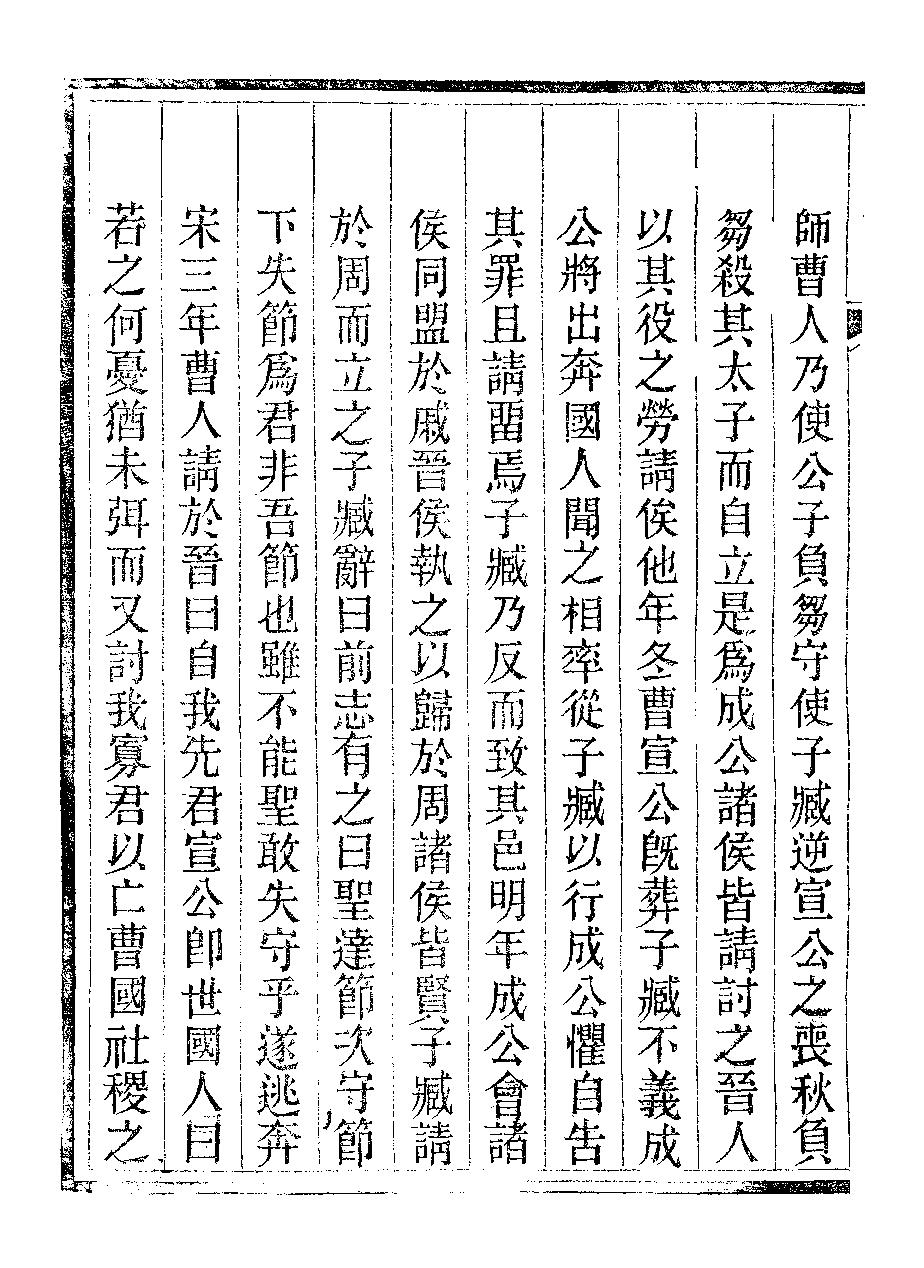 師曹人乃使公子負芻守使子臧逆宣公之喪秋負
芻殺其太子而自立是爲成公諸侯皆請討之晉人
以其役之勞請俟他年冬曹宣公旣葬子臧不義成
公將出奔國人聞之相率從子臧以行成公懼自告
其罪且請畱焉子臧乃反而致其邑明年成公會諸
侯同盟於戚晉侯執之以歸於周諸侯皆賢子臧請
於周而立之子臧辭曰前志有之曰聖達節次守節
下失節爲君非吾節也雖不能聖敢失守乎遂逃奔
宋三年曹人請於晉曰自我先君宣公卽世國人曰
若之何憂猶未弭而又討我寡君以亡曹國社稷之